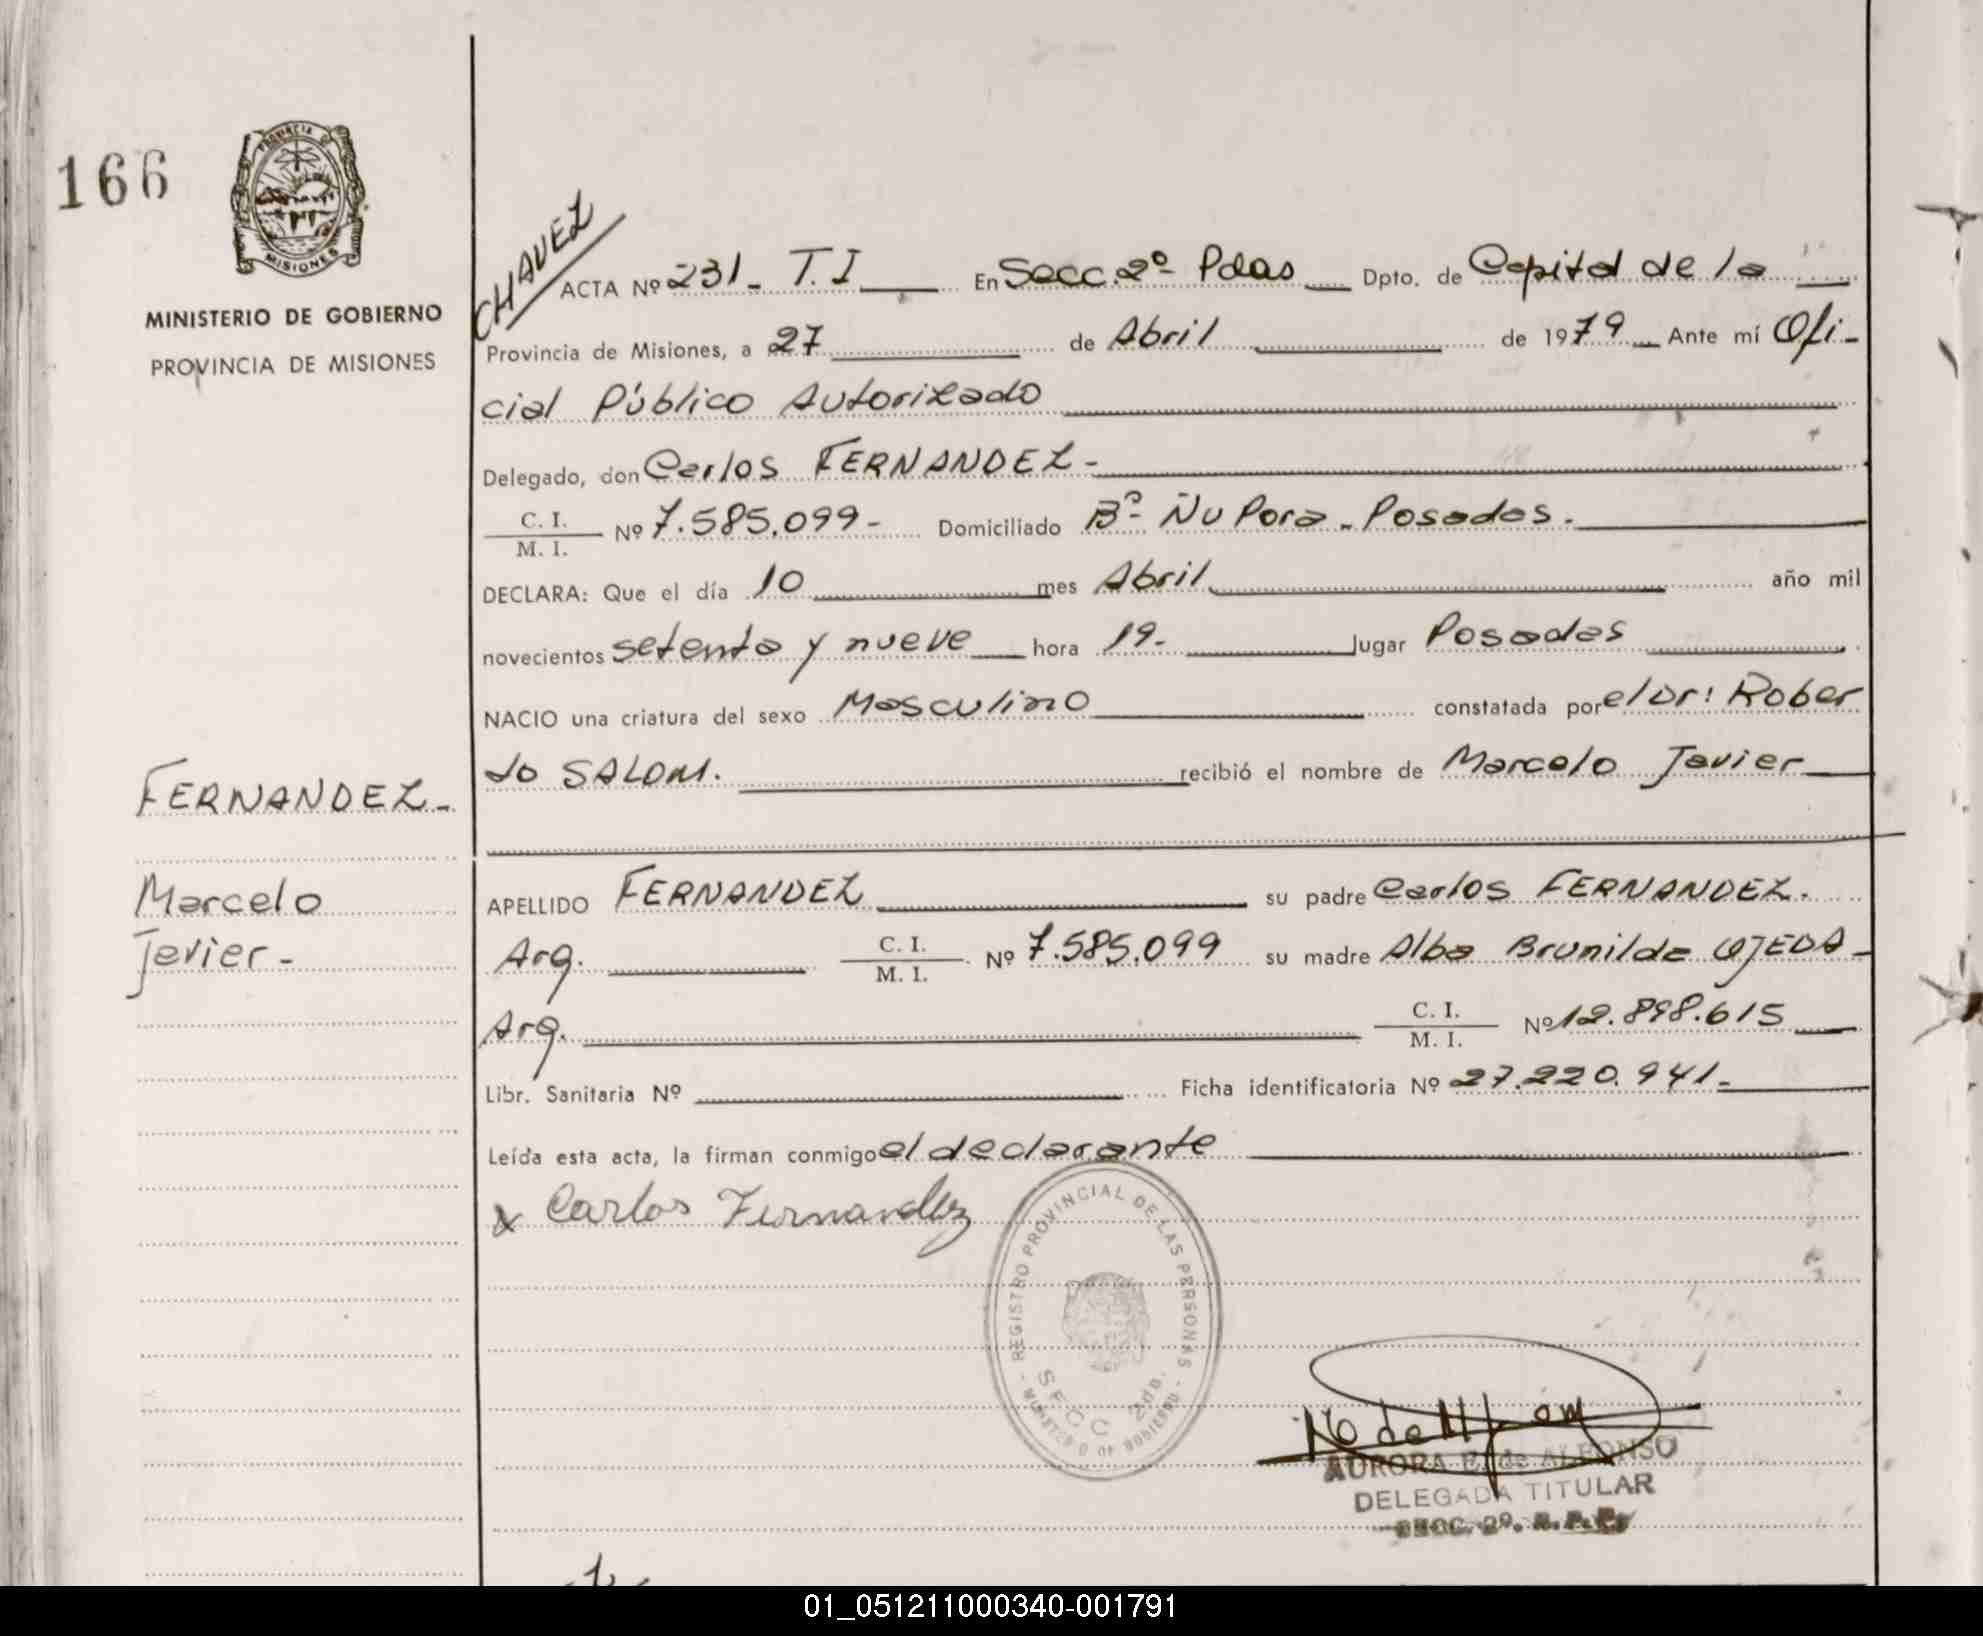 166
PROVINCIA DE
MISIONES
MINISTERIO DE GOBIERNO
PROVINCIA DE MISIONES
CHAVEZ
ACTA Nº 231- T.I En Secc. 2º- Pdas Dpto. de Capital de la
Provincia de Misiones, a 27 de Abril de 1979 Ante mí Ofi-
cial Público Autorizado
Delegado, don Carlos FERNANDEZ-
C. I.
M. I. Nº 7.585.099- Domiciliado Bº- Ñu Pora - Posadas.
DECLARA: Que el día 10 mes Abril año mil
novecientos setenta y nueve hora 19- lugar Posadas
NACIO una criatura del sexo Masculino constatada por el Dr: Rober
to SALOM. recibió el nombre de Marcelo Javier
FERNANDEZ-
Marcelo
Javier-
APELLIDO FERNANDEZ su padre Carlos FERNANDEZ.
Arg. C. I.
M. I. Nº 7.585.099 su madre Alba Brunilda OJEDA-
Arg. C. I.
M. I. Nº 12.898.615
Libr. Sanitaria Nº Ficha identificatoria Nº 27.220.941-
Leída esta acta, la firman conmigo el declarante
x Carlos Fernandez
- REGISTRO PROVINCIAL DE LAS PERSONAS -
SECC 2da.
AURORA E. de ALFONSO
DELEGADA TITULAR
SECC. 2º. R.P.P.
01_051211000340-001791